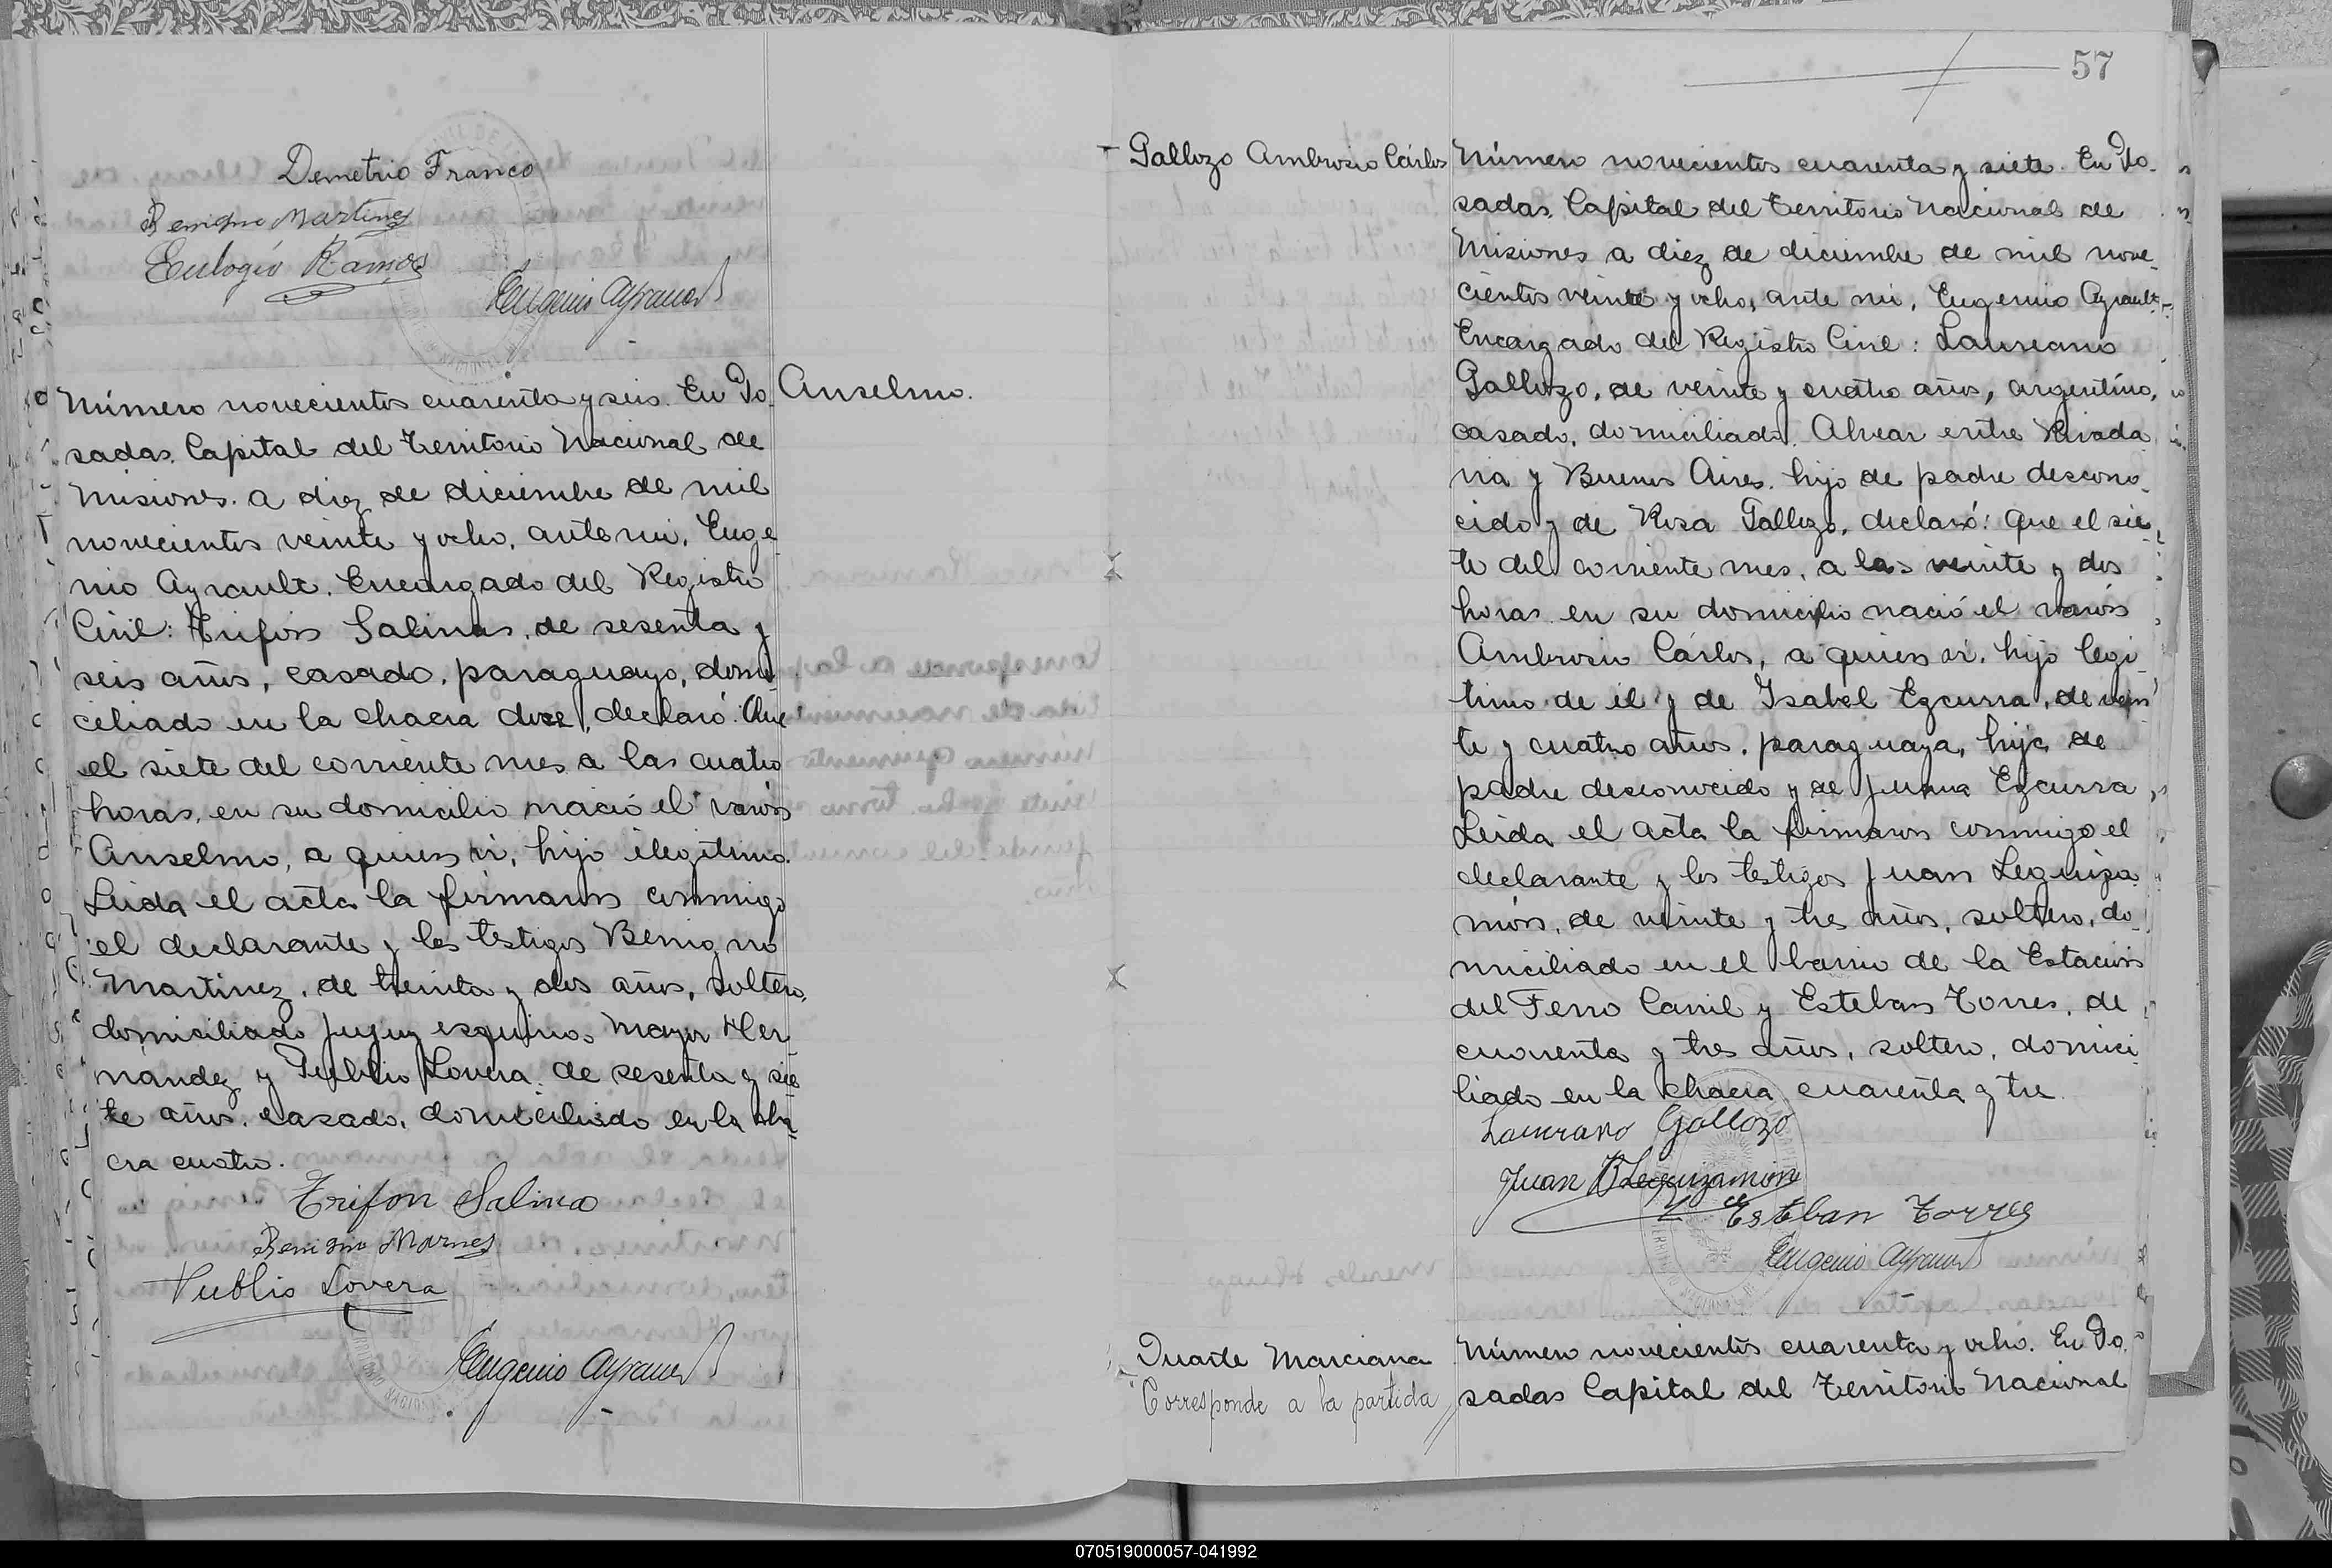 Demetrio Franco
Benigno Martinez
Eulogio Ramos
Eugenio Ayrault
Número novecientos cuarenta y seis. En Po-
sadas, Capital del Territorio Nacional de
Misiones. a diez de diciembre de mil
novecientos veinte y ocho, ante mi, Euge-
nio Ayrault. Encargado del Registro
Civil: Trifón Salinas, de sesenta y
seis años, casado, paraguayo, domi-
ciliado en la chacra doce, declaró: Que
el siete del corriente mes a las cuatro
horas, en su domicilio nació el varón
Anselmo, a quien vi, hijo ilegitimo.
Leida el acta la firmaron conmigo
el declarante y los testigos Benigno
Martinez, de treinta y dos años, soltero,
domiciliado Jujuy esquina Mayor Her-
nandez y Publio Lovera. de sesenta y sie-
te años. casado, domiciliado en la cha-
cra cuatro.
Trifon Salina
Benigno Marnes
Publio Lovera
Eugenio Ayrault
Anselmo.
57
Gallozo Ambrosio Cárlos
Número novecientos cuarenta y siete. En Po-
sadas, Capital del Territorio Nacional de
Misiones a diez de diciembre de mil nove-
cientos veinte y ocho, ante mi, Eugenio Ayrault.
Encargado del Registro Civil: Laureano
Gallozo, de veinte y cuatro años, argentino,
casado, domiciliado. Alvear entre Rivada
via y Buenos Aires. hijo de padre descono-
cido y de Rosa Gallozo, declaró: Que el sie-
te del corriente mes, a las veinte y dos
horas en su domicilio nació el varón
Ambrosio Cárlos, a quien vi, hijo legi-
timo de él y de Isabel Ezcurra, de vein
te y cuatro años, paraguaya, hija de
padre desconocido y de Juana Ezcurra
Leida el acta la firmaron conmigo el
declarante y los testigos Juan Leguiza-
món, de veinte y tres años, soltero, do-
miciliado en el barrio de la Estación
del Ferro Carril y Esteban Torres, de
cuarenta y tres años, soltero, domici
liado en la chacra cuarenta y tres.
Laureano Gallozo
Juan B Leguizamón
Esteban Torres
Eugenio Ayrault
Duarte Marciana
Corresponde a la partida
Número novecientos cuarenta y ocho. En Po-
sadas Capital del Territorio Nacional
070519000057-041992